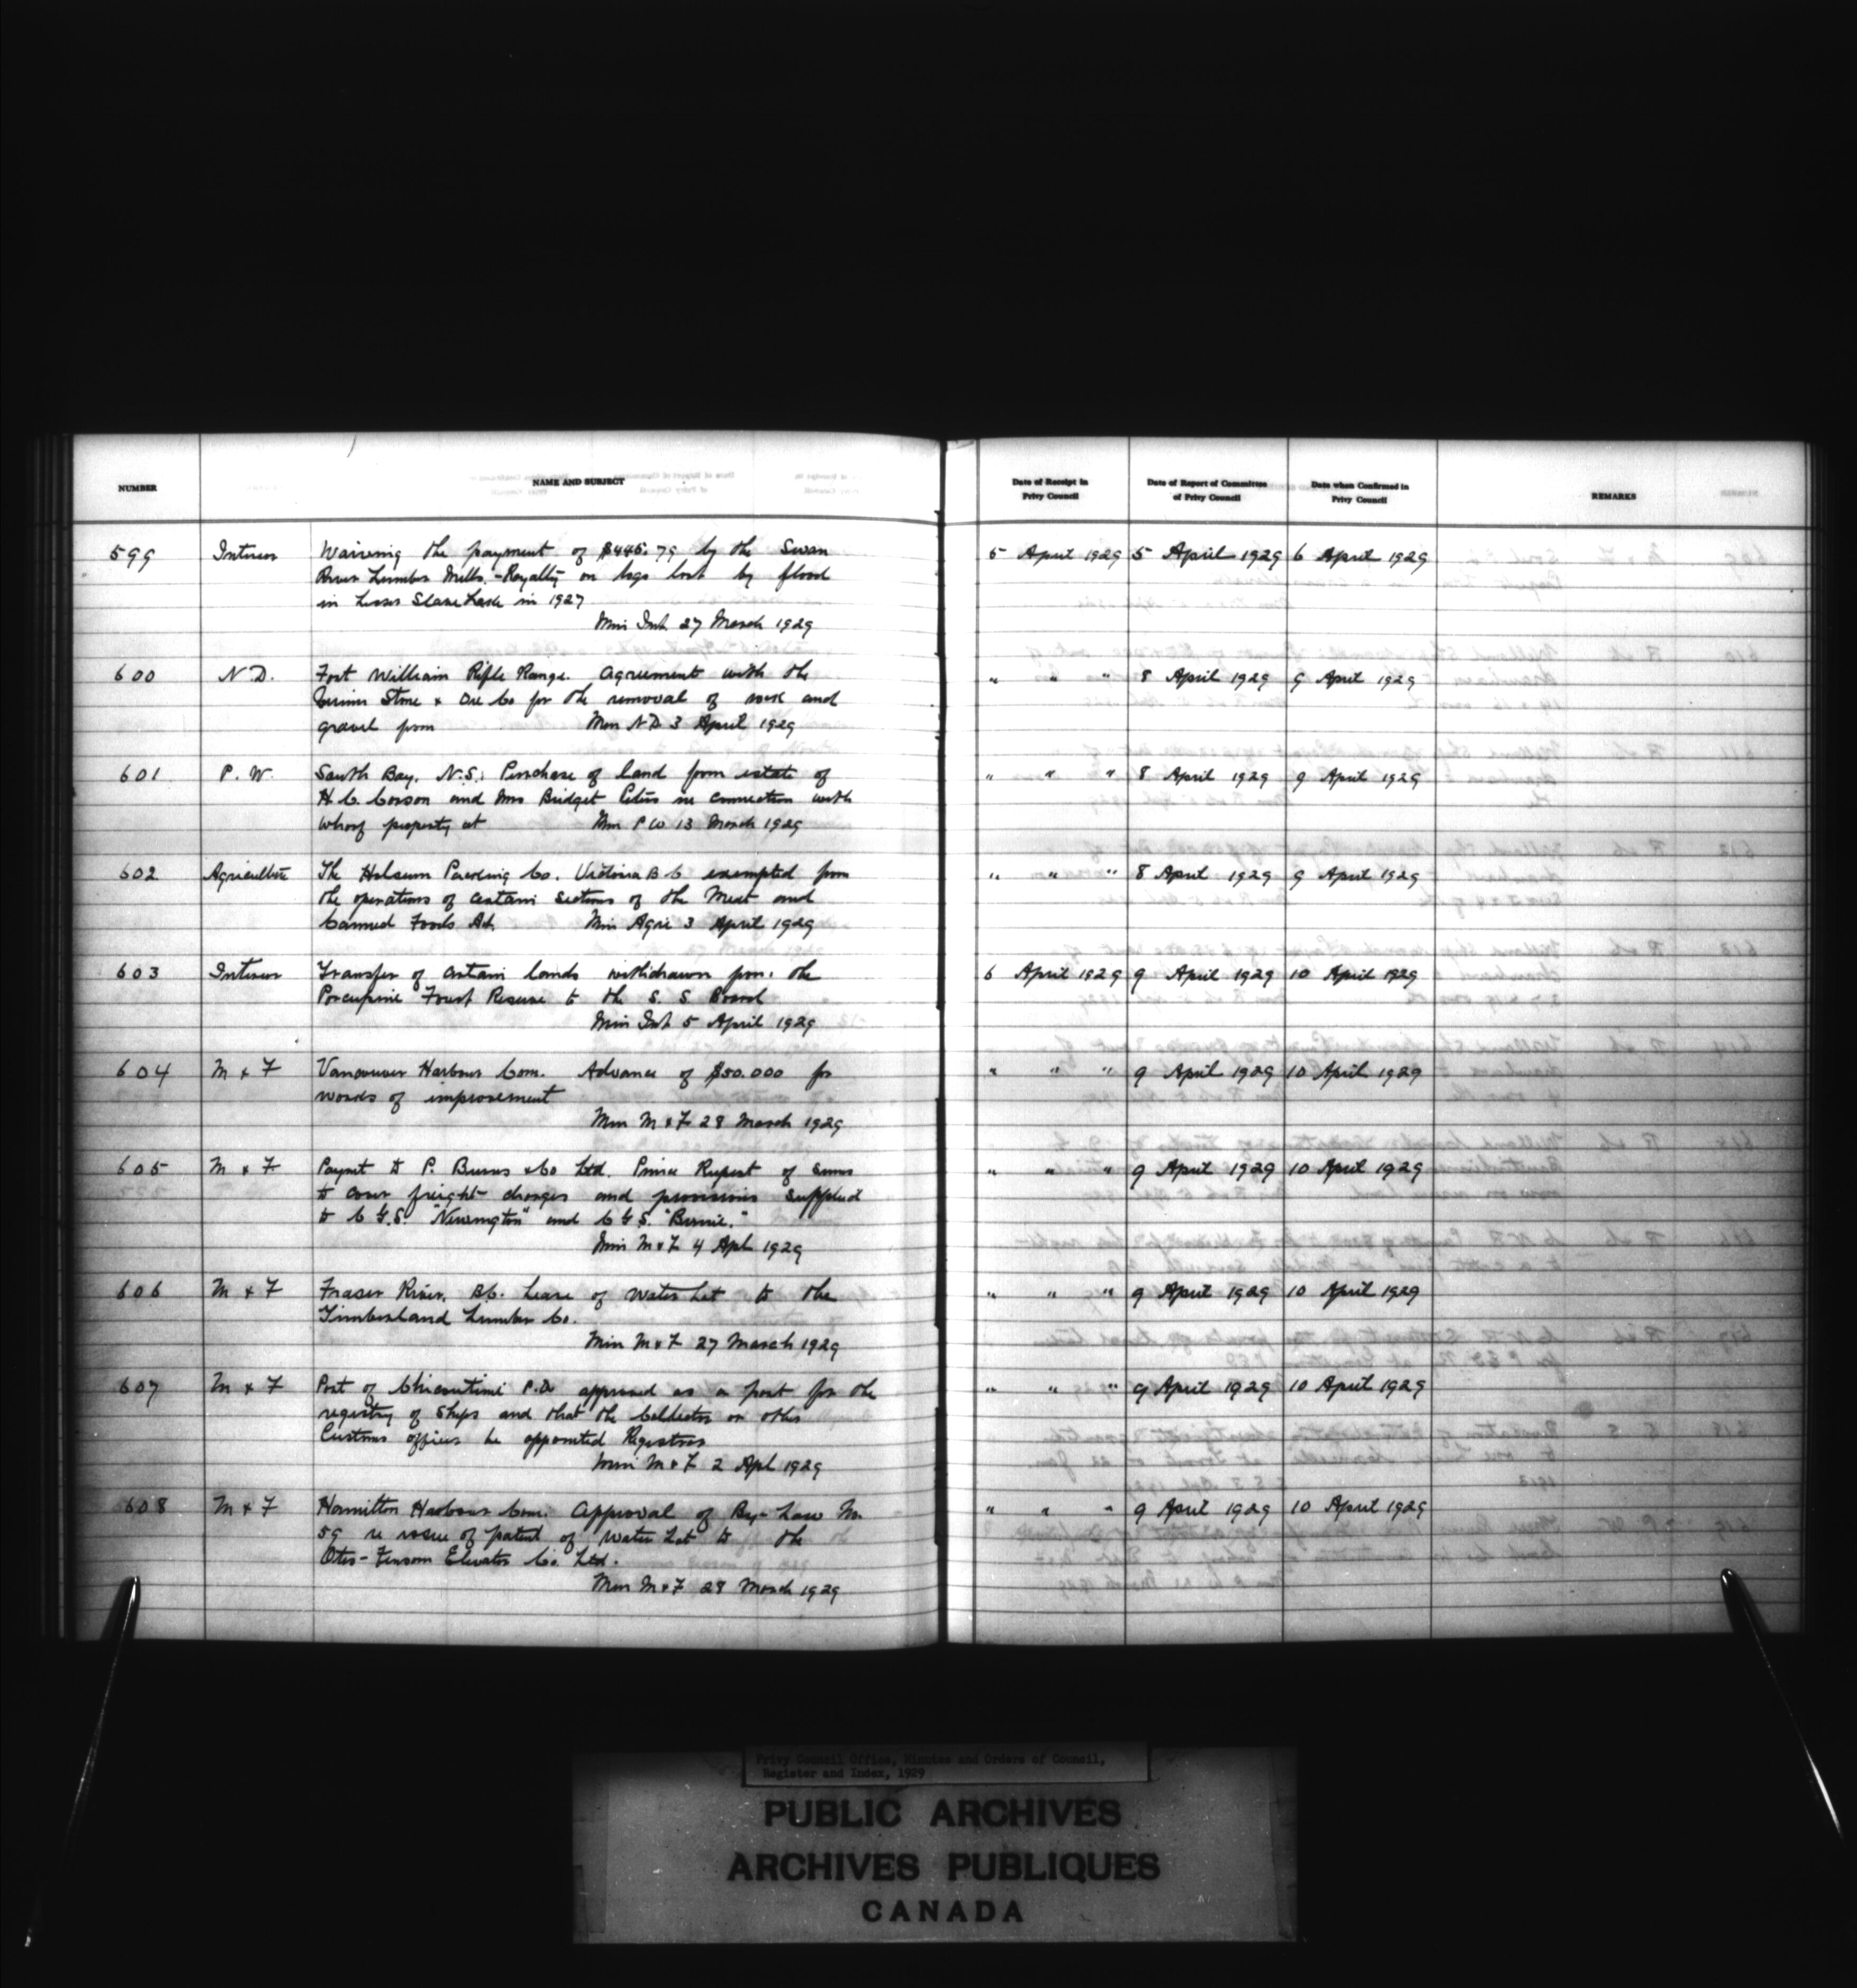 NUMBER NAME AND SUBJECT Date of Receipt in Privy Council Date of Report of Committee of Privy Council Date when Confirmed in Privy Council REMARKS
599 Interior Waiving the payment of $445.79 by the Swan 5 April 1929 5 April 1929 6 April 1929
River Lumber Mills. - Royalty on logs lost by flood
in Lesser Slave Lake in 1927
Min Int 27 March 1929
600 N.D. Fort William Rifle Range. Agreement with the " " " 8 April 1929 9 April 1929
Stone & Ore Co for the removal of rock and
gravel from Min N.D. 3 April 1929
601 P. W. South Bay. N.S. Purchase of land from estate of " " " 8 April 1929 9 April 1929
H. C. Corson and Mrs Bridget in connection with
wharf property at Min P W 13 March 1929
602 Agriculture The Holsum Packing Co. Victoria B C exempted from " " " 8 April 1929 9 April 1929
the operations of certain sections of the Meat and
Canned Foods Act Min Agri 3 April 1929
603 Interior Transfer of certain lands withdrawn from the 6 April 1929 9 April 1929 10 April 1929
Porcupine Forest Reserve to the S. S. Board
Min Int 5 April 1929
604 M & F Vancouver Harbour Com. Advance of $50.000 for " " " 9 April 1929 10 April 1929
works of improvement
Min M & F 28 March 1929
605 M & F Paymt to P. Burns & Co Ltd. Prince Rupert of sums " " " 9 April 1929 10 April 1929
to cover freight charges and provisions supplied
to C.G.S. "Newington" and C G S. "Birnie."
Min M & F 4 Apl 1929
606 M & F Fraser River. B.C. Lease of Water Lot to the " " " 9 April 1929 10 April 1929
Timberland Lumber Co.
Min M & F 27 March 1929
607 M & F Port of Chicoutimi P.Q. approved as a port for the " " " 9 April 1929 10 April 1929
registry of ships and that the Collector or other
Customs officer be appointed Registrar
Min M & F 2 Apl 1929
608 M & F Hamilton Harbour Com. Approval of By-Law No. " " " 9 April 1929 10 April 1929
59 re issue of patent of Water Lot to the
Otis-Fensom Elevator Co. Ltd.
Min M & F 28 March 1929
Privy Council Office, Minutes and Orders of Council,
Register and Index, 1929
PUBLIC ARCHIVES
ARCHIVES PUBLIQUES
CANADA